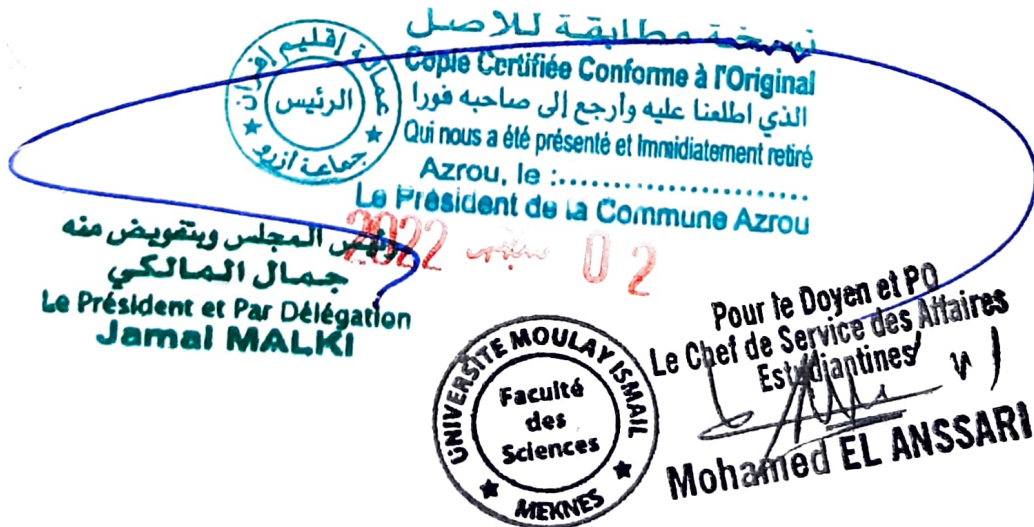 نسخة مطابقة للاصل
Copie Certifiée Conforme à l'Original
الذي اطلعنا عليه وأرجع إلى صاحبه فورا
Qui nous a été présenté et Immidiatement retiré
Azrou, le :........................
Le Président de la Commune Azrou
عمالة إقليم إفران
الرئيس
جماعة ازرو
2022 02
رئيس المجلس وبتفويض منه
جمال المالكي
Le Président et Par Délégation
Jamal MALKI
UNIVERSITE MOULAY ISMAIL
Faculté
des
Sciences
MEKNES
Pour le Doyen et PO
Le Chef de Service des Affaires
Estudiantines
Mohamed EL ANSSARI